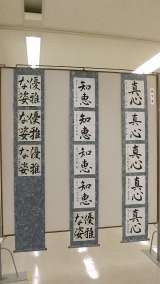 真心
真心
真心
真心
真心
知恵
知恵
知恵
知恵
優雅
な姿
優雅
な姿
優雅
な姿
優雅
な姿